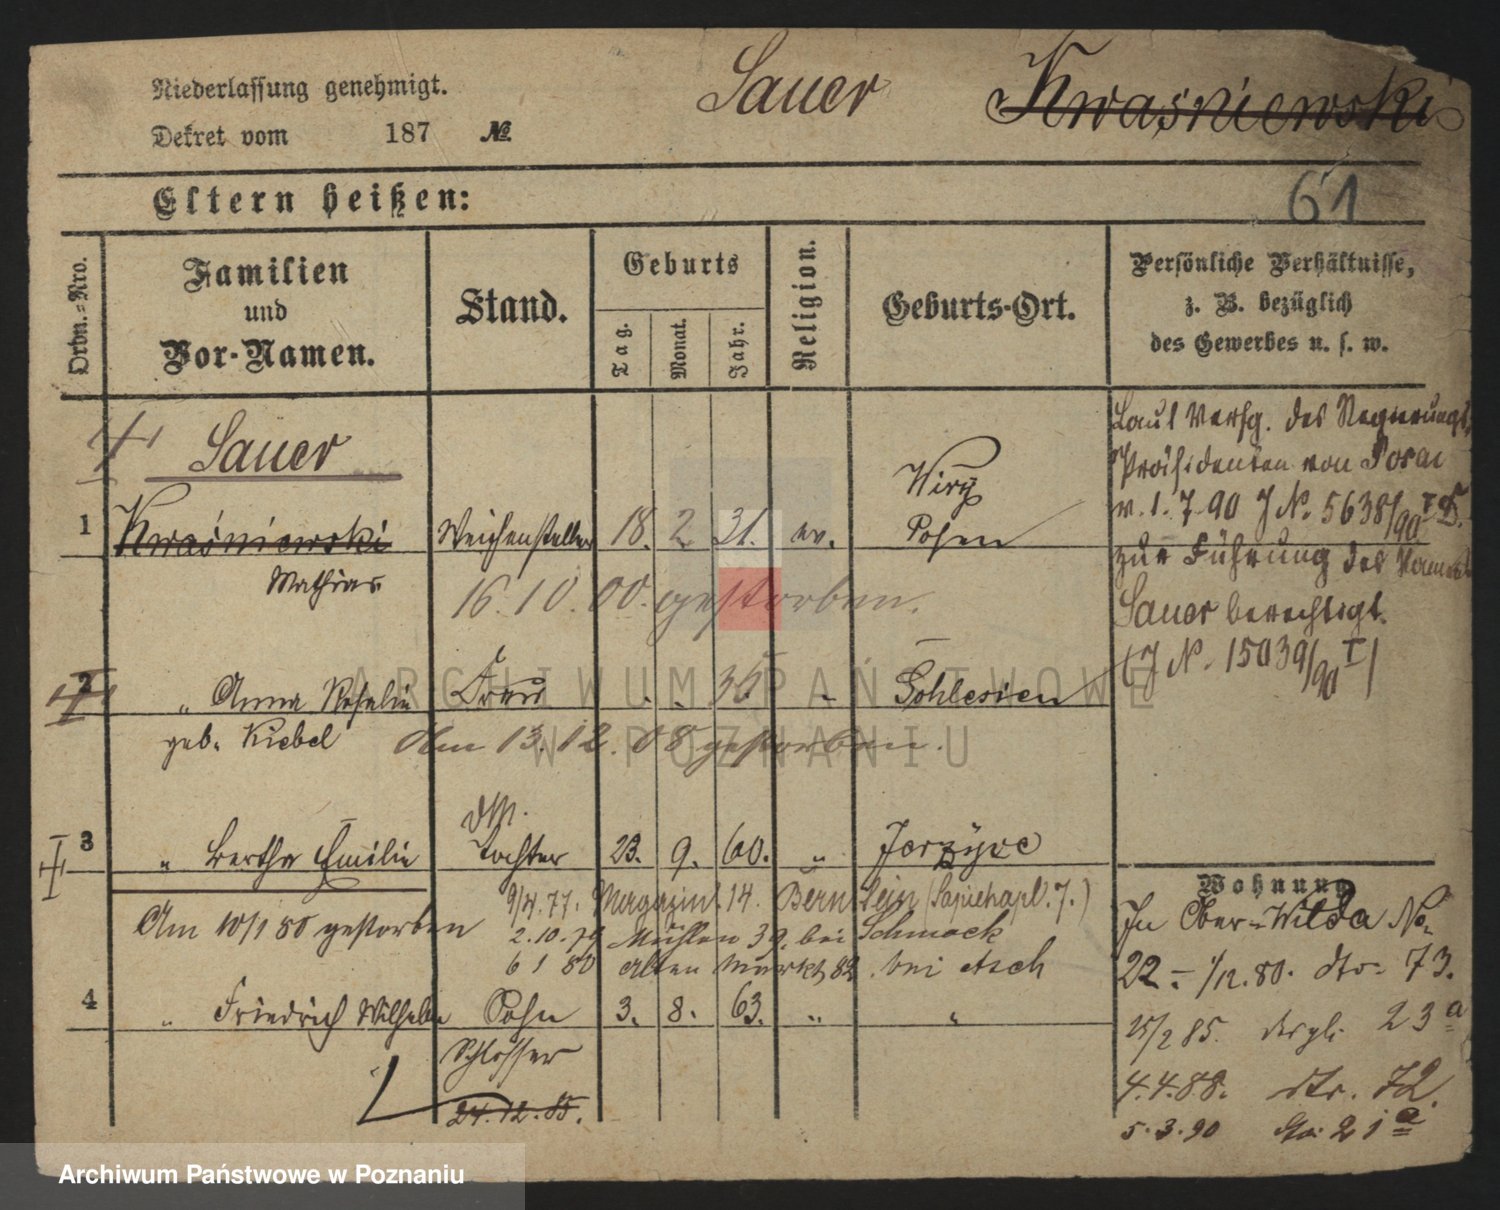 Niederlassung genehmigt.
Dekret vom 187 №
Sauer Kwaśniewski
Eltern heißen:
61
Ordn.-Nro.
Familien
und
Vor-Namen.
Stand.
Geburts
Tag.
Monat.
Jahr.
Religion.
Geburts-Ort.
Persönliche Verhältnisse,
z. B. bezüglich
des Gewerbes u. s. w.
Sauer
1 Kwaśniewski Weichensteller 18. 2. 31. ev. Posen
Mathias
16.10.00. gestorben.
Laut Verfg. des Regierungs-
Präsidenten von Posen
v. 1.7.90 J No. 5638/90 I
zur Führung des Namens
Sauer berechtigt.
(J No. 15039/90 I)
2 " Anna Rosalie Frau " " 36. " Schlesien
geb. Kiebel
Am 13.12.08 gestorben.
3 " Bertha Emilie Tochter 23. 9. 60. " Jerzyce
Am 10/1 80 gestorben
9/4.77. Magazinst. 14. Bernstein (Sapiehapl. 7.)
2.10.79 Mühlen 39. bei Schmock
6 1 80 Alten Markt 82. bei Asch
4 " Friedrich Wilhelm Sohn 3. 8. 63. " "
Schlosser
24.12.85.
Wohnung
In Ober-Wilda No.
22 – 1/12.80. dto. 73.
15/2 85. dergl. 23 a
4.4.88. dto. 72.
5.3.90 dto. 21 a
ARCHIWUM PAŃSTWOWE
W POZNANIU
Archiwum Państwowe w Poznaniu